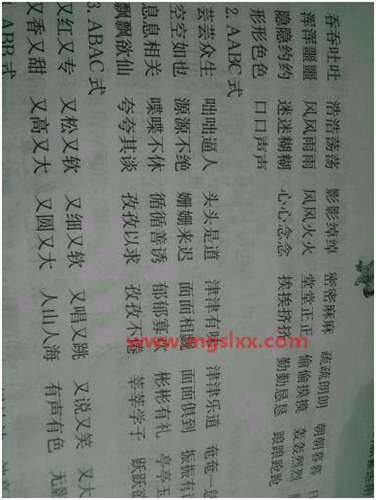 吞吞吐吐 浩浩荡荡 影影绰绰 密密麻麻 疏疏朗朗 朝朝暮暮
浑浑噩噩 风风雨雨 风风火火 堂堂正正 偷偷摸摸 轰轰烈烈
隐隐约约 迷迷糊糊 心心念念 挨挨挤挤 勤勤恳恳 踉踉跄跄
形形色色 口口声声
2. AABC 式
芸芸众生 咄咄逼人 头头是道 津津有味 津津乐道 奄奄一息
空空如也 源源不绝 姗姗来迟 面面相觑 面面俱到 振振有
息息相关 喋喋不休 循循善诱 郁郁寡欢 彬彬有礼 亭亭玉
飘飘欲仙 夸夸其谈 孜孜以求 孜孜不倦 莘莘学子 跃跃欲
3. ABAC 式
又红又专 又松又软 又细又软 又唱又跳 又说又笑 又大
又香又甜 又高又大 又圆又大 人山人海 有声有色 无
ABB 式
www.mgslxx.com